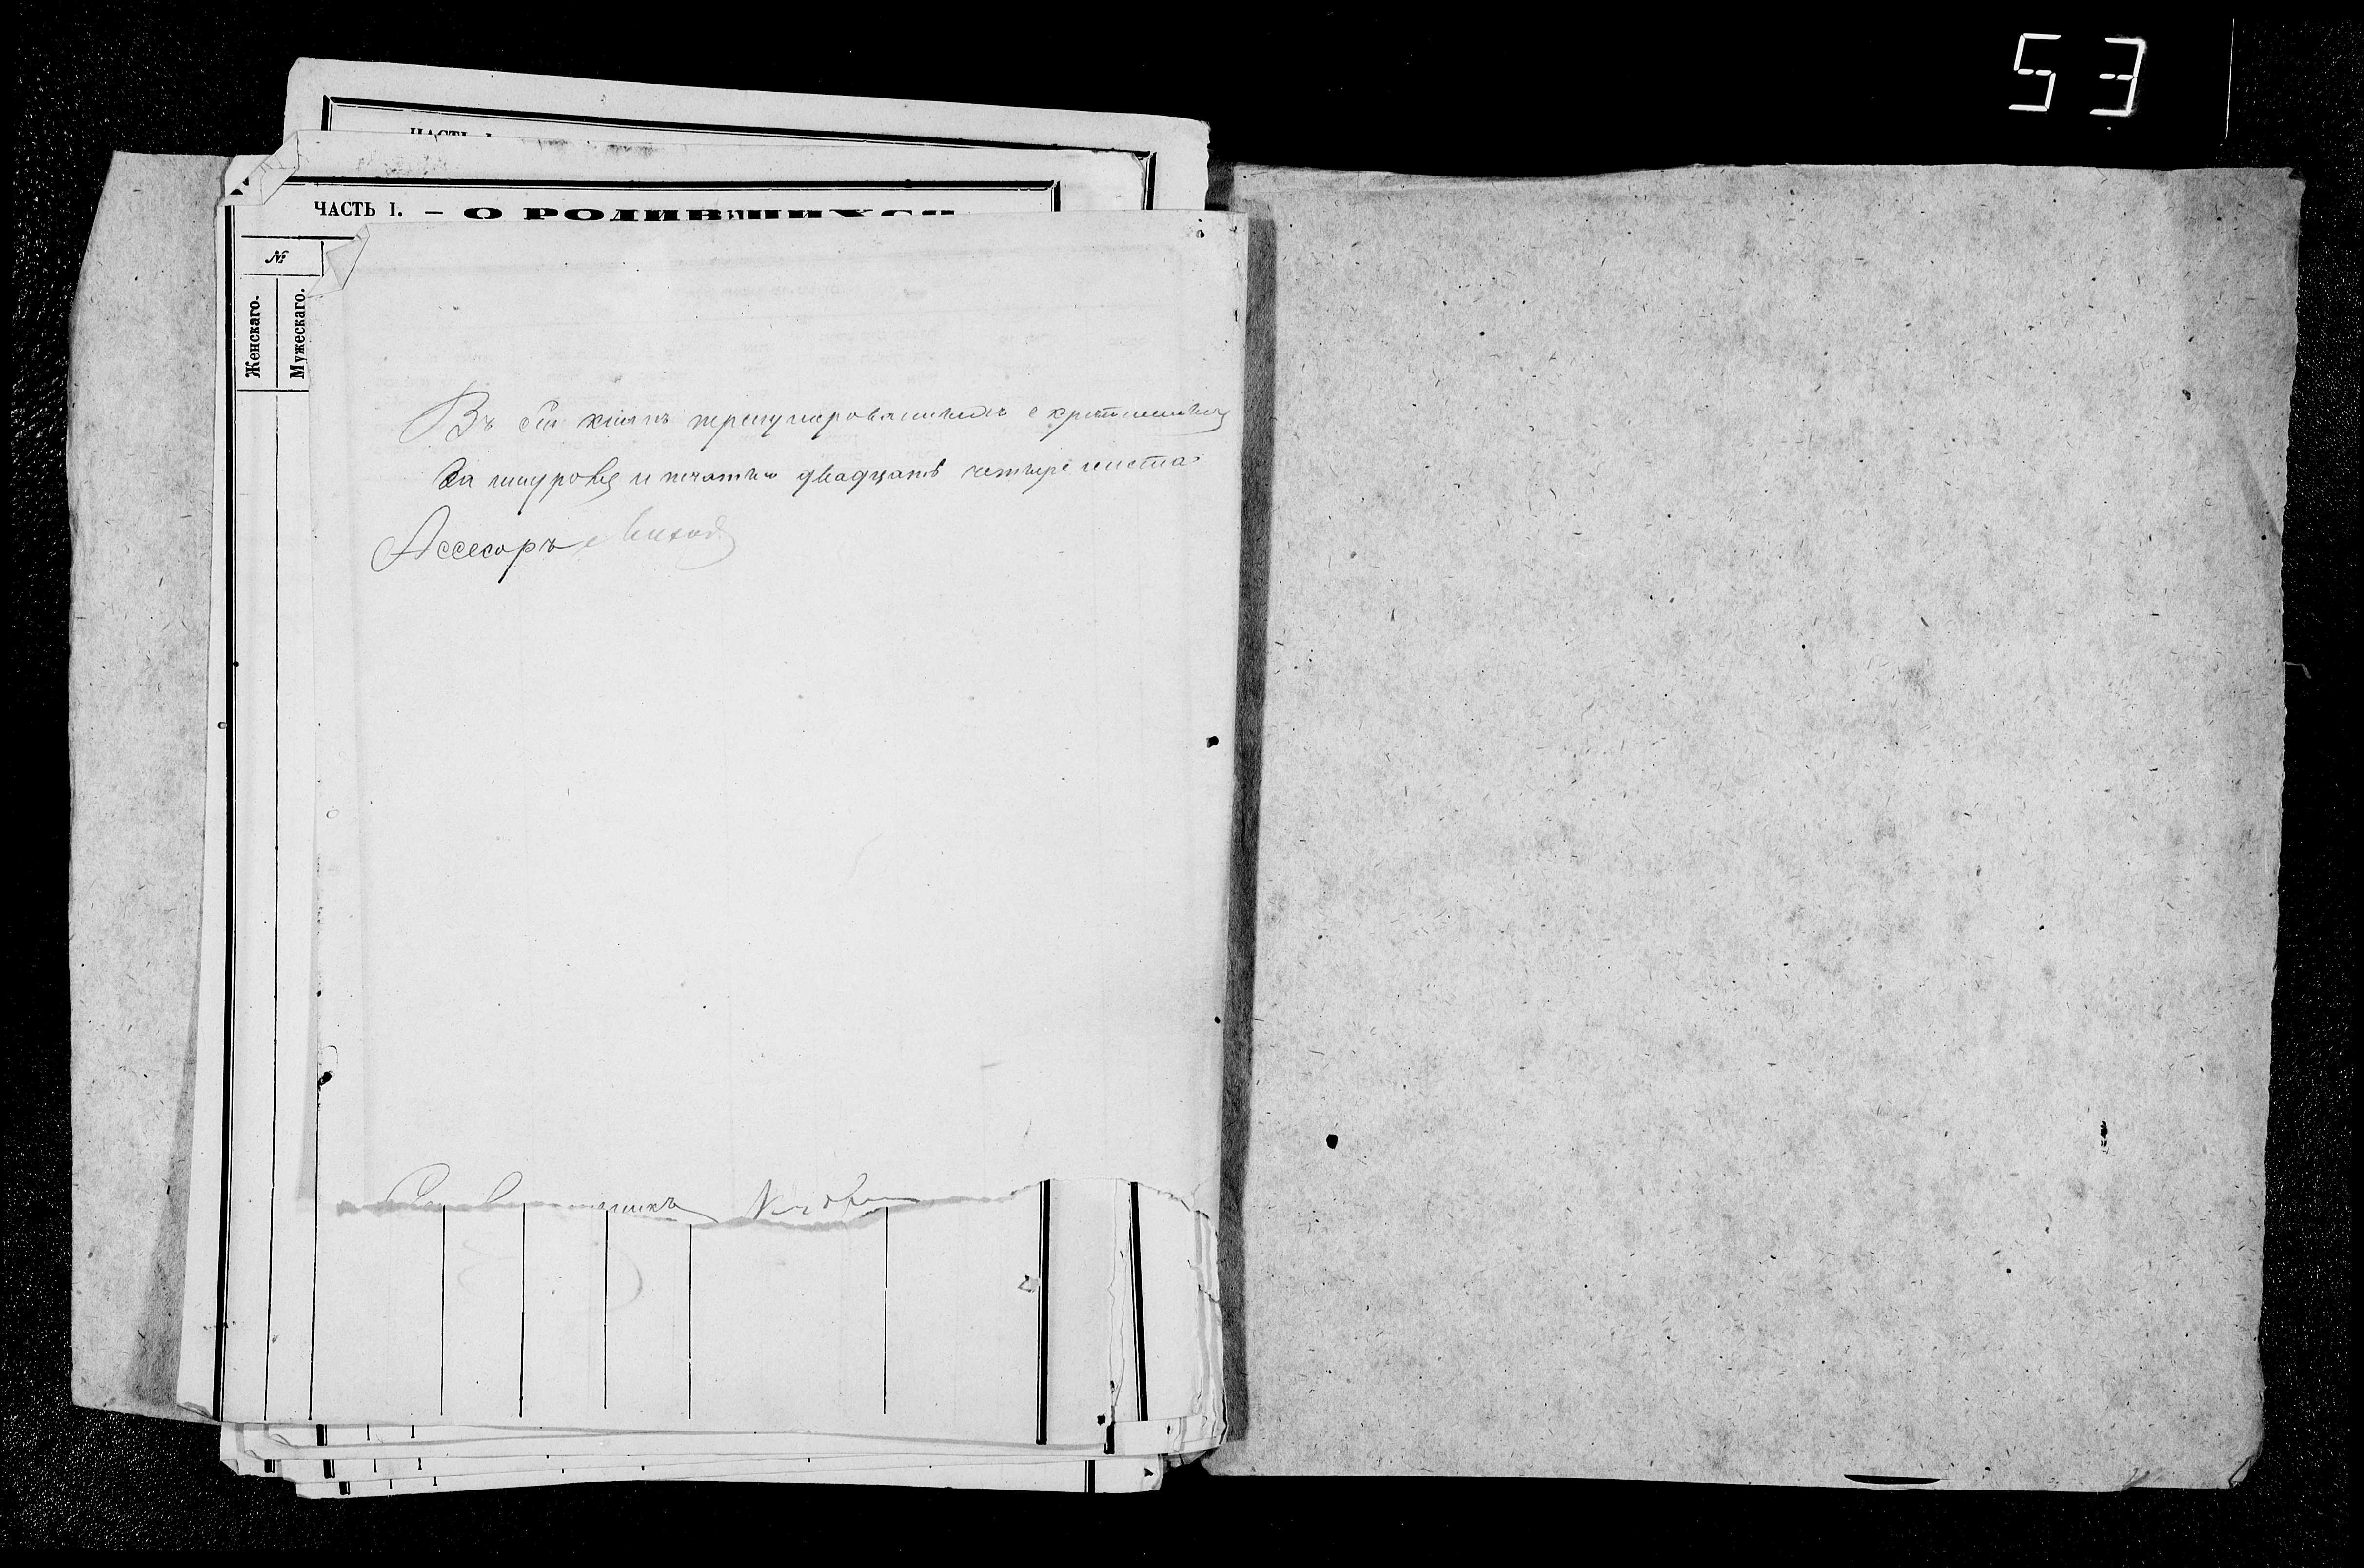 53
ЧАСТЬ I.
ЧАСТЬ I. — О РОДИВШИХСЯ
№
Женскаго.
Мужескаго.
Въ сей книгѣ пронумерованныхъ скрѣпленныхъ
за шнуровъ и печатью двадцать четыре листа
Ассесоръ